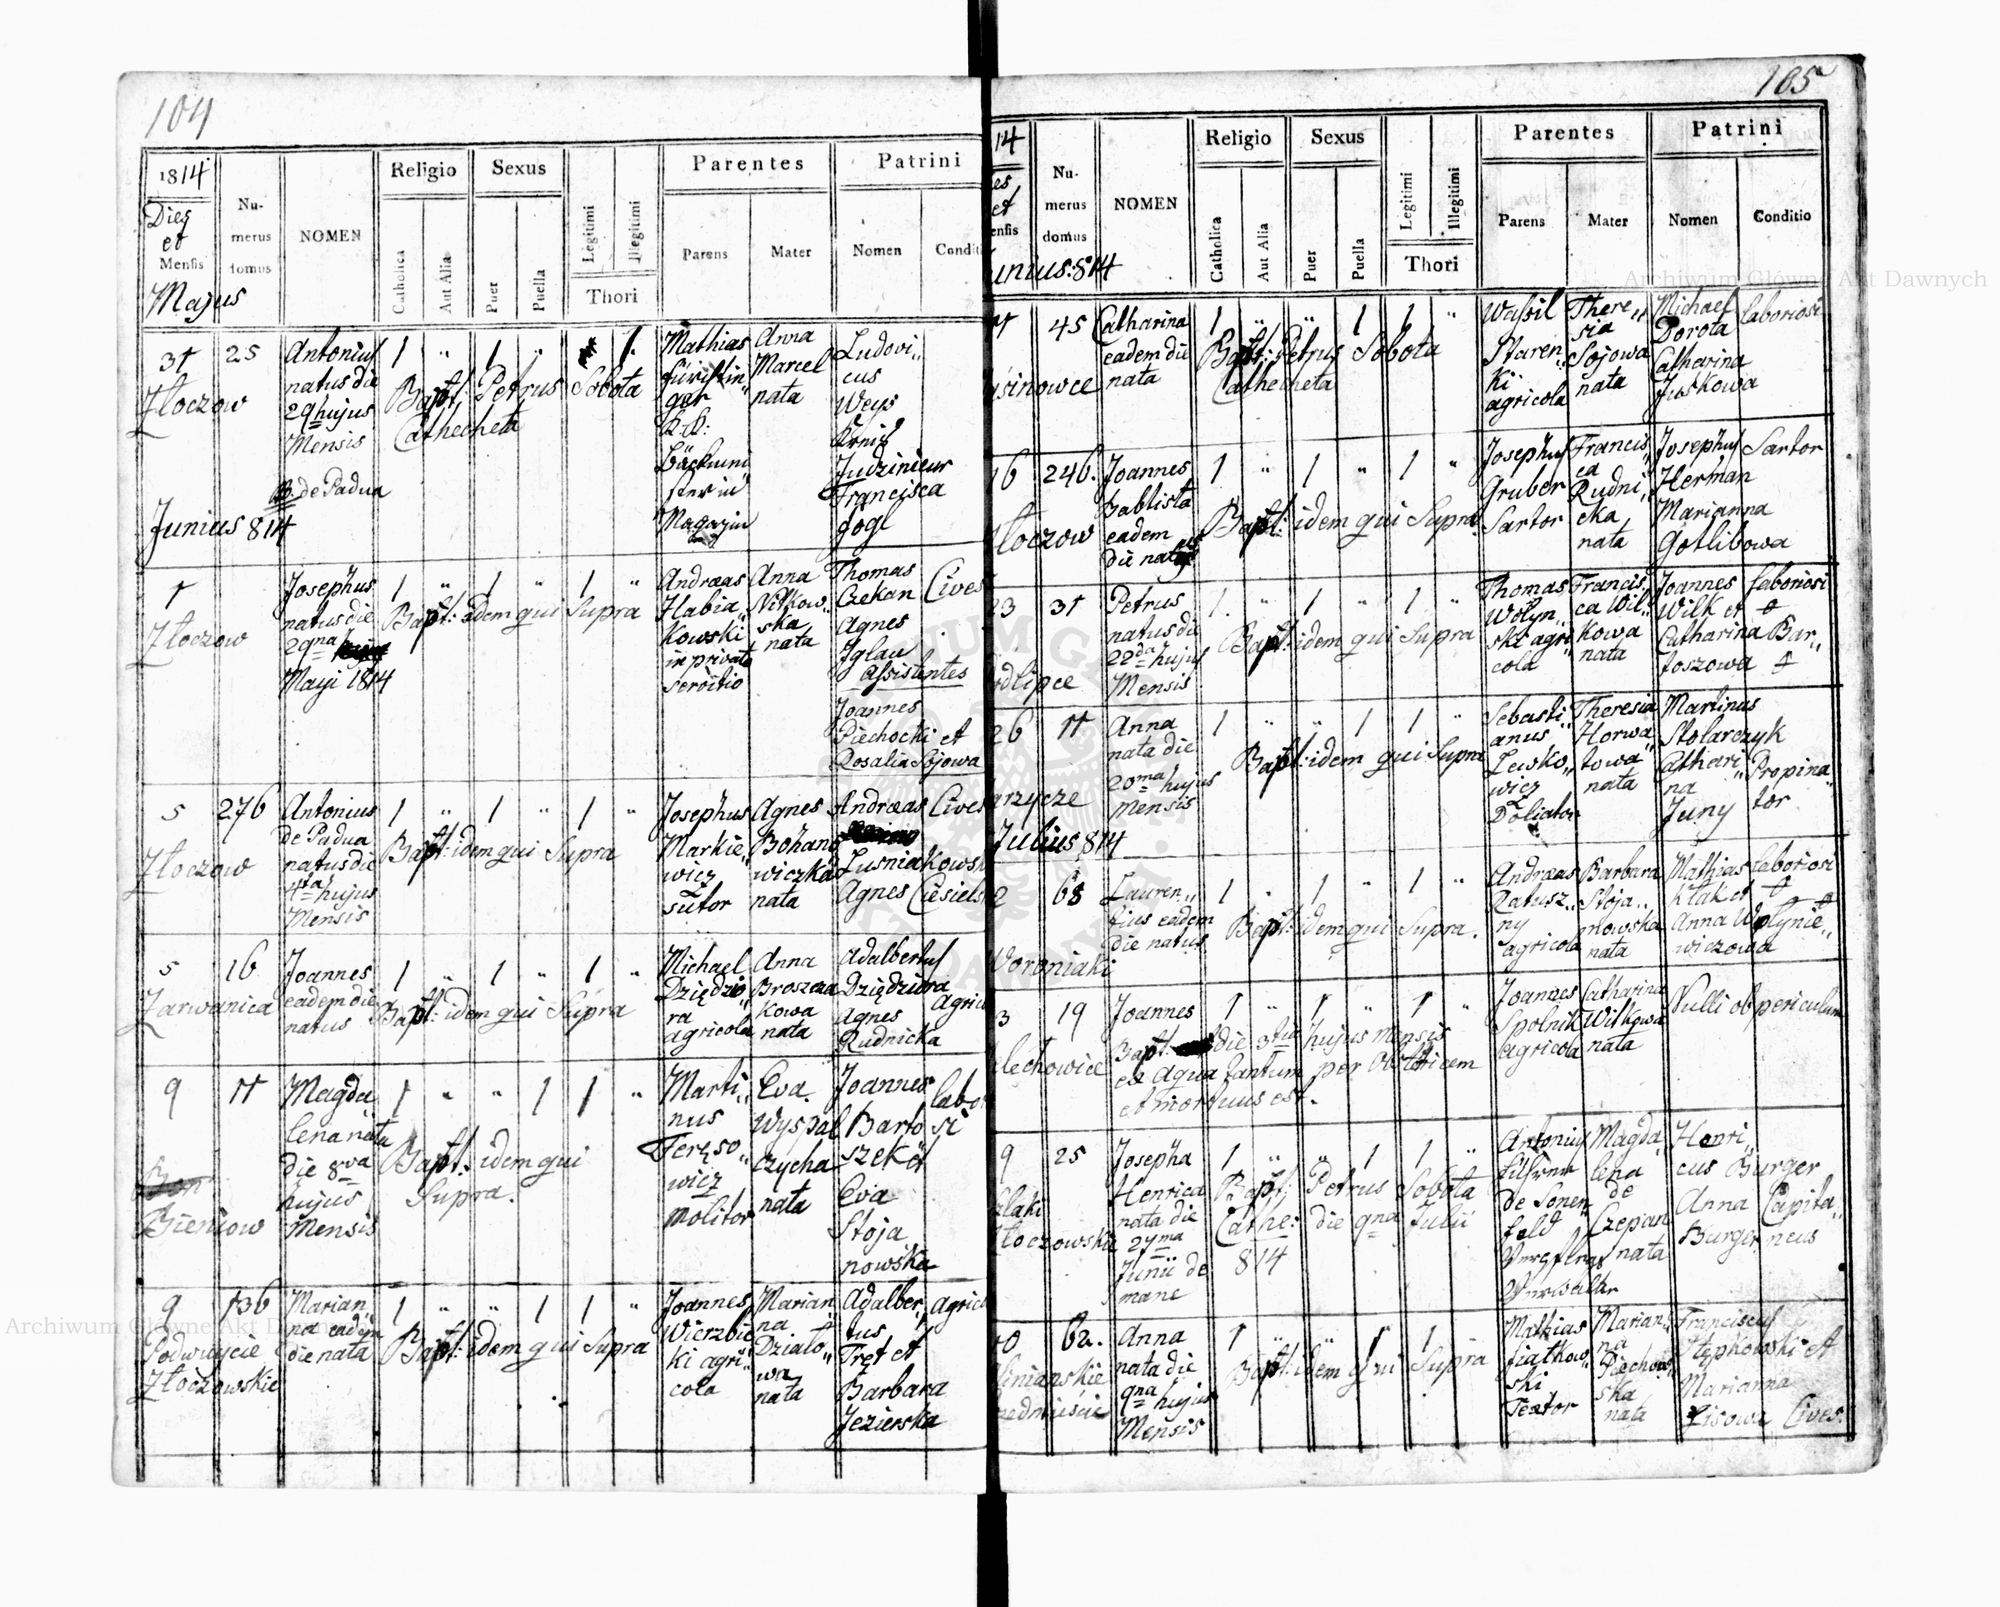 104
1814
Dies
et
Mensis
Majus
Nu-
merus
domus
NOMEN
Religio
Catholica
Aut Alia
Sexus
Puer
Puella
Legitimi
Illegitimi
Thori
Parentes
Parens
Mater
Patrini
Nomen
Conditi
31
Złoczow
25
Antonius
natus die
29 hujus
Mensis
de Padua
1 " 1 " 1.
Bapt: Petrus Sobota
Cathecheta
Mathias
Anna
Marcel
nata
Ludovi„
cus
Weys
Francisca
Fogl
Junius 814
1
Złoczow
Josephus
natus die
29na
Maji 1814
1 " 1 " 1 "
Bapt: idem qui Supra
Andreas
Habia„
kowski
in privato
servitio
Anna
Nitkow„
ska
nata
Thomas
Czekan
Agnes
Iglau
Cives
assistentes
Joannes
Piechocki et
Rosalia Sojowa
5
Złoczow
276
Antonius
de Padua
natus die
4ta hujus
Mensis
1 " 1 " 1 "
Bapt: idem qui Supra
Josephus
Markie„
wicz
sutor
Agnes
Bohano
wiczka
nata
Andreas
Lusniakowsk
Agnes Ciesiels
Cives
5
Zarwanica
16
Joannes
eadem die
natus
1 " 1 " 1 "
Bapt: idem qui Supra
Michael
Dziędzio„
ra
agricola
Anna
Broszcza
kowa
nata
Adalbertus
Dziędziora
Agnes
Rudnicka
Agric
9
Bieniow
11
Magda„
lena nata
die 8va
hujus
Mensis
1 " " 1 1 "
Bapt: idem qui
Supra.
Marti„
nus
Teręso„
wicz
molitor
Eva
Wyspal
czycha
nata
Joannes
Barto
szek et
Eva
Stoja
nowska
labo
si
9
Podwoycie
Złoczowskie
136
Marian„
na eadem
die nata
1 " " 1 1 "
Bapt: idem qui Supra
Joannes
Wierzbic
ki agri„
cola
Marian„
na
Działo„
wa
nata
Adalber„
tus
Tręt et
Barbara
Jezierska
Agric
105
14
es
et
ensis
unius 814
Nu-
merus
domus
NOMEN
Religio
Catholica
Aut Alia
Sexus
Puer
Puella
Legitimi
Illegitimi
Thori
Parentes
Parens
Mater
Patrini
Nomen
Conditio
45
Catharina
eadem die
nata
1 " " 1 1 "
Bapt: Petrus Sobota
Cathecheta
Wasil
Staren„
ki
agricola
There„
sia
Sojowa
nata
Michael
Dorota
Catharina
Juskowa
laboriosi
16
łoczow
246.
Joannes
Bablista
eadem
die natus
1 " 1 " 1 "
Bapt: idem qui Supra
Josephus
Gruber
Sartor
Francis„
ca
Rudni„
cka
nata
Josephus
Herman
Marianna
Gotlibowa
Sartor
23
odlipce
31
Petrus
natus die
22da hujus
Mensis
1 " 1 " 1 "
Bapt: idem qui Supra
Thomas
Wolyn„
ski agri„
cola
Francis„
ca Wil„
kowa
nata
Joannes
Wilk et
Catharina Bar„
toszowa
laboriosi
26
arzycze
11
Anna
nata die
20ma hujus
Mensis
1 " " 1 1 "
Bapt: idem qui Supra
Sebasti„
anus
Lewko„
wicz
Doliator
Theresia
Horwa„
towa
nata
Martinus
Stolarczyk
Cathari„
na
Juny
Propina„
tor
Julius 814
2
Woroniaki
68
Lauren„
tius eadem
die natus
1 " 1 " 1 "
Bapt: idem qui Supra.
Andreas
Ratusz„
ny
agricola
Barbara
Stoja„
nowska
nata
Mathias
Kłak et
Anna Wołynie„
wiczowa
laboriosi
3
lechowice
19
Joannes
1 " 1 " 1 "
Bapt: die 3tia hujus mensis
ex aqua tantum per obstetricem
et mortuus est.
Joannes
Spolnik
agricola
Catharina
Witkowa
nata
Nulli ob periculum
9
laki
łoczowskie
25
Josepha
Henrica
nata die
27ma
Junii de
mane
1 " " 1 1 "
Bapt: Petrus Sobota
Cathe: die 9na Julii
814
Antonius
De Sonen
feld
Verwalter
Magda„
lena
de
Czepan
nata
Henri„
cus Burger
Anna
Burger
Capita„
neus
10
liniańskie
zedmieście
62.
Anna
nata die
9na hujus
Mensis
1 " " 1 1 "
Bapt: idem qui Supra
Mathias
Fiatkow„
ski
Textor
Marian„
na
Piechow„
ska
nata
Franciscus
Stępkowski et
Marianna
Lisowa Cives.
Archiwum Główne Akt Dawnych
Archiwum Główne Akt Dawnych